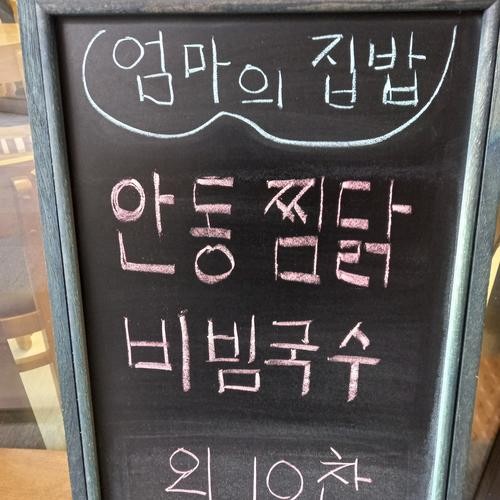 엄마의 집밥
안동 찜닭
비빔국수
외 10찬